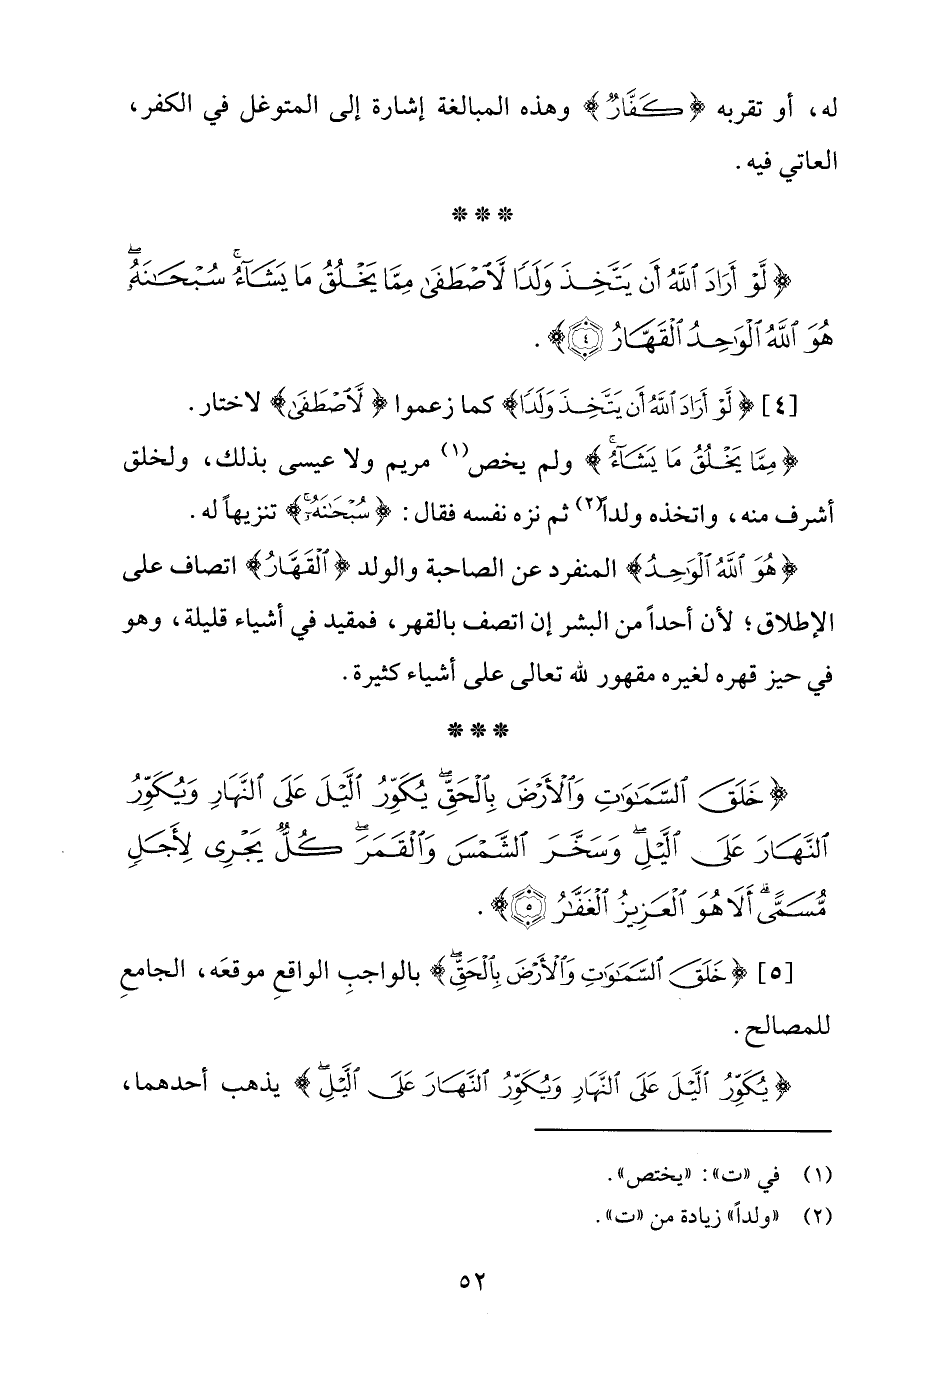 له، أو تقربه ﴿كَفَّارٌ﴾ وهذه المبالغة إشارة إلى المتوغل في الكفر،
العاتي فيه.
* * *
﴿لَّوْ أَرَادَ ٱللَّهُ أَن يَتَّخِذَ وَلَدًا لَّٱصْطَفَىٰ مِمَّا يَخْلُقُ مَا يَشَآءُ ۚ سُبْحَـٰنَهُۥ ۖ
هُوَ ٱللَّهُ ٱلْوَٰحِدُ ٱلْقَهَّارُ ۝٤﴾.
[٤] ﴿لَّوْ أَرَادَ ٱللَّهُ أَن يَتَّخِذَ وَلَدًا﴾ كما زعموا ﴿لَّٱصْطَفَىٰ﴾ لاختار.
﴿مِمَّا يَخْلُقُ مَا يَشَآءُ ۚ﴾ ولم يخص(١) مريم ولا عيسى بذلك، ولخلق
أشرف منه، واتخذه ولداً(٢) ثم نزه نفسه فقال: ﴿سُبْحَـٰنَهُۥ ۚ﴾ تنزيهاً له.
﴿هُوَ ٱللَّهُ ٱلْوَٰحِدُ﴾ المنفرد عن الصاحبة والولد ﴿ٱلْقَهَّارُ﴾ اتصاف على
الإطلاق؛ لأن أحداً من البشر إن اتصف بالقهر، فمقيد في أشياء قليلة، وهو
في حيز قهره لغيره مقهور لله تعالى على أشياء كثيرة.
* * *
﴿خَلَقَ ٱلسَّمَـٰوَٰتِ وَٱلْأَرْضَ بِٱلْحَقِّ ۖ يُكَوِّرُ ٱلَّيْلَ عَلَى ٱلنَّهَارِ وَيُكَوِّرُ
ٱلنَّهَارَ عَلَى ٱلَّيْلِ ۖ وَسَخَّرَ ٱلشَّمْسَ وَٱلْقَمَرَ ۖ كُلٌّ يَجْرِى لِأَجَلٍ
مُّسَمًّى ۗ أَلَا هُوَ ٱلْعَزِيزُ ٱلْغَفَّـٰرُ ۝٥﴾.
[٥] ﴿خَلَقَ ٱلسَّمَـٰوَٰتِ وَٱلْأَرْضَ بِٱلْحَقِّ ۖ﴾ بالواجبِ الواقعِ موقعَه، الجامعِ
للمصالح.
﴿يُكَوِّرُ ٱلَّيْلَ عَلَى ٱلنَّهَارِ وَيُكَوِّرُ ٱلنَّهَارَ عَلَى ٱلَّيْلِ ۖ﴾ يذهب أحدهما،
(١) في «ت»: «يختص».
(٢) «ولداً» زيادة من «ت».
٥٢